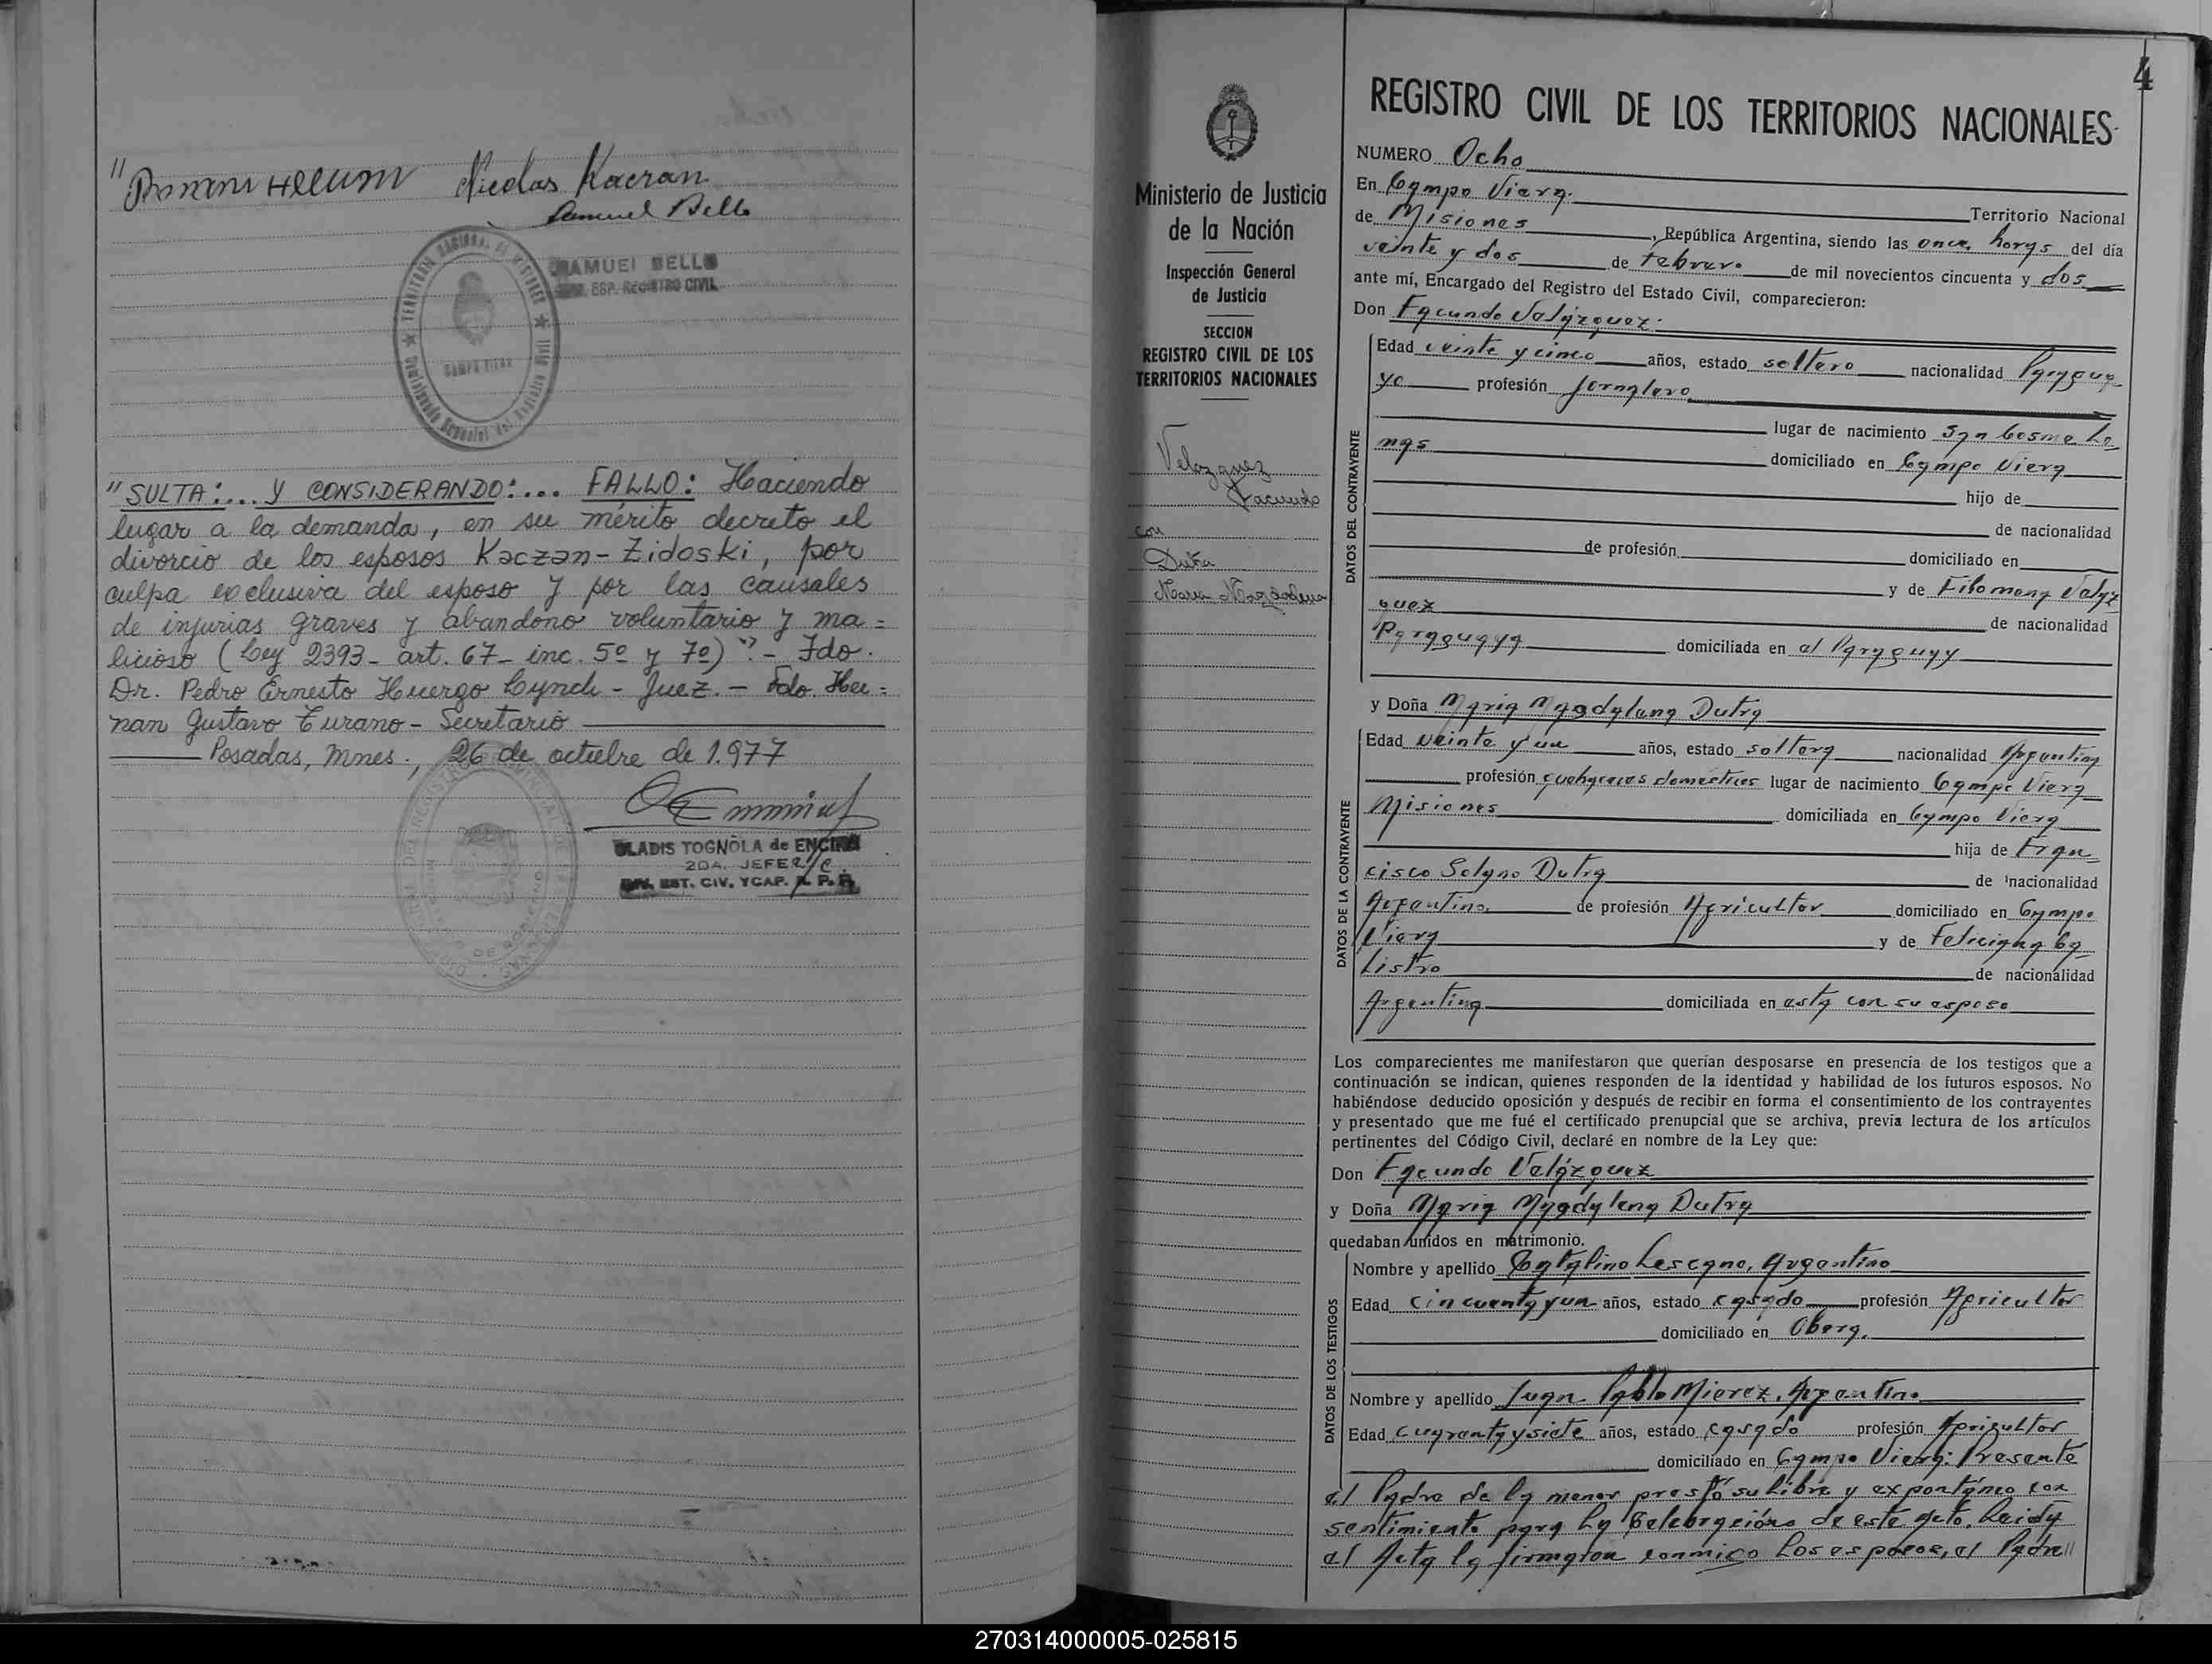 Nicolas Kaczan
Samuel Bello
SAMUEL BELLO
ESP. REGISTRO CIVIL
CAMPO VIERA
"SULTA:.... Y CONSIDERANDO:.... FALLO: Haciendo
lugar a la demanda, en su mérito decreto el
divorcio de los esposos Kaczan-Zidoski, por
culpa exclusiva del esposo y por las causales
de injurias graves y abandono voluntario y ma=
licioso (Ley 2393- art. 67- inc. 5º y 7º)".- Fdo.
Dr. Pedro Ernesto Huergo Lynch - Juez. - Fdo. Her=
nan Gustavo Turano - Secretario
Posadas, Mnes., 26 de octubre de 1.977
GLADIS TOGNOLA de ENCINA
2DA. JEFE a/c
DIV. EST. CIV. Y CAP. R. P. P.
4
REGISTRO CIVIL DE LOS TERRITORIOS NACIONALES
Ministerio de Justicia
de la Nación
Inspección General
de Justicia
SECCION
REGISTRO CIVIL DE LOS
TERRITORIOS NACIONALES
Velazquez
Facundo
con
Dutra
Maria Magdalena
NUMERO Ocho
En Campo Viera. Territorio Nacional
de Misiones, República Argentina, siendo las once horas del día
veinte y dos de febrero de mil novecientos cincuenta y dos
ante mí, Encargado del Registro del Estado Civil, comparecieron:
Don Facundo Velázquez.
DATOS DEL CONTRAYENTE
Edad veinte y cinco años, estado soltero nacionalidad Paragua
yo profesión Jornalero
lugar de nacimiento San Cosme Lo
mas domiciliado en Campo Viera
hijo de
de nacionalidad
de profesión domiciliado en
y de Filomena Veláz
quez de nacionalidad
Paraguaya domiciliada en el Paraguay
y Doña Maria Magdalena Dutra
DATOS DE LA CONTRAYENTE
Edad veinte y un años, estado soltera nacionalidad Argentina
profesión quehaceres domesticos lugar de nacimiento Campo Viera
Misiones domiciliada en Campo Viera
hija de Fran
cisco Solano Dutra de nacionalidad
Argentino. de profesión Agricultor domiciliado en Campo
Viera y de Feliciana Ca
listro de nacionalidad
Argentina domiciliada en esta con su esposo
Los comparecientes me manifestaron que querían desposarse en presencia de los testigos que a
continuación se indican, quienes responden de la identidad y habilidad de los futuros esposos. No
habiéndose deducido oposición y después de recibir en forma el consentimiento de los contrayentes
y presentado que me fué el certificado prenupcial que se archiva, previa lectura de los artículos
pertinentes del Código Civil, declaré en nombre de la Ley que:
Don Facundo Velázquez
y Doña Maria Magdalena Dutra
quedaban unidos en matrimonio.
DATOS DE LOS TESTIGOS
Nombre y apellido Catalino Lescano, Argentino
Edad cincuenta y un años, estado casado profesión Agricultor
domiciliado en Obera.
Nombre y apellido Juan Pablo Mierez, Argentino
Edad cuarenta y siete años, estado casado profesión Agricultor
domiciliado en Campo Viera: Presente
el Padre de la menor prestó su libre y expontáneo con
sentimiento para la Celebración de este acto. Leida
el Acta la firmaron conmigo los esposos, el Padre"
270314000005-025815